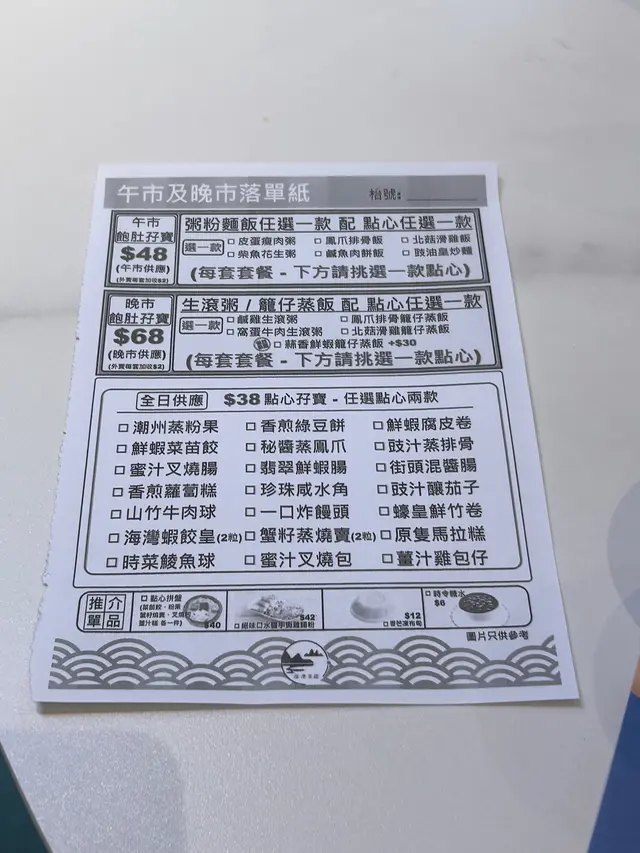 午市及晚市落單紙 枱號:
午市
飽肚孖寶
$48
(午市供應)
(外賣每套加收$2)
粥粉麵飯任選一款 配 點心任選一款
選一款
□ 皮蛋瘦肉粥 □ 鳳爪排骨飯 □ 北菇滑雞飯
□ 柴魚花生粥 □ 鹹魚肉餅飯 □ 豉油皇炒麵
(每套套餐 - 下方請挑選一款點心)
晚市
飽肚孖寶
$68
(晚市供應)
(外賣每套加收$2)
生滾粥 / 籠仔蒸飯 配 點心任選一款
選一款
□ 鹹雞生滾粥 □ 鳳爪排骨籠仔蒸飯
□ 窩蛋牛肉生滾粥 □ 北菇滑雞籠仔蒸飯
□ 蒜香鮮蝦籠仔蒸飯 +$30
(每套套餐 - 下方請挑選一款點心)
全日供應 $38 點心孖寶 - 任選點心兩款
□ 潮州蒸粉果 □ 香煎綠豆餅 □ 鮮蝦腐皮卷
□ 鮮蝦菜苗餃 □ 秘醬蒸鳳爪 □ 豉汁蒸排骨
□ 蜜汁叉燒腸 □ 翡翠鮮蝦腸 □ 街頭混醬腸
□ 香煎蘿蔔糕 □ 珍珠咸水角 □ 豉汁釀茄子
□ 山竹牛肉球 □ 一口炸饅頭 □ 蠔皇鮮竹卷
□ 海灣蝦餃皇(2粒) □ 蟹籽蒸燒賣(2粒) □ 原隻馬拉糕
□ 時菜鯪魚球 □ 蜜汁叉燒包 □ 薑汁雞包仔
推介
單品
□ 點心拼盤
$40
$42
$12
□ 時令糖水
$6
圖片只供參考